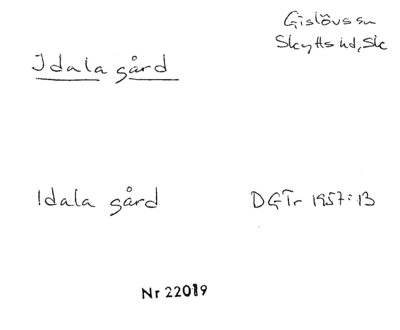 Gislövs sn
Skytts hd, Sk
Idala gård
Idala gård DGTr 1957:13
Nr 22019